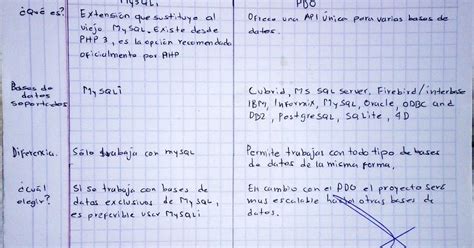 MySQLi PDO
¿Qué es? Extensión que sustituye al Ofrece una API única para varias bases de
viejo MySQL. Existe desde datos.
PHP 3, es la opción recomendada
oficialmente por PHP
Bases de MySQLi Cubrid, MS SQL server, Firebird/interbase
datos IBM, Informix, MySQL, Oracle, ODBC and
soportados DD2, PostgreSQL, SQLite, 4D
Diferencia. Sólo trabaja con mysQL Permite trabajas con todo tipo de bases
de datos de la misma forma.
¿cuál SI se trabaja con bases de En cambio con el PDO el proyecto será
elegir? datos exclusivos de MySQL, mus escalable hasta otras bases de
es preferible usar MySQLi datos.